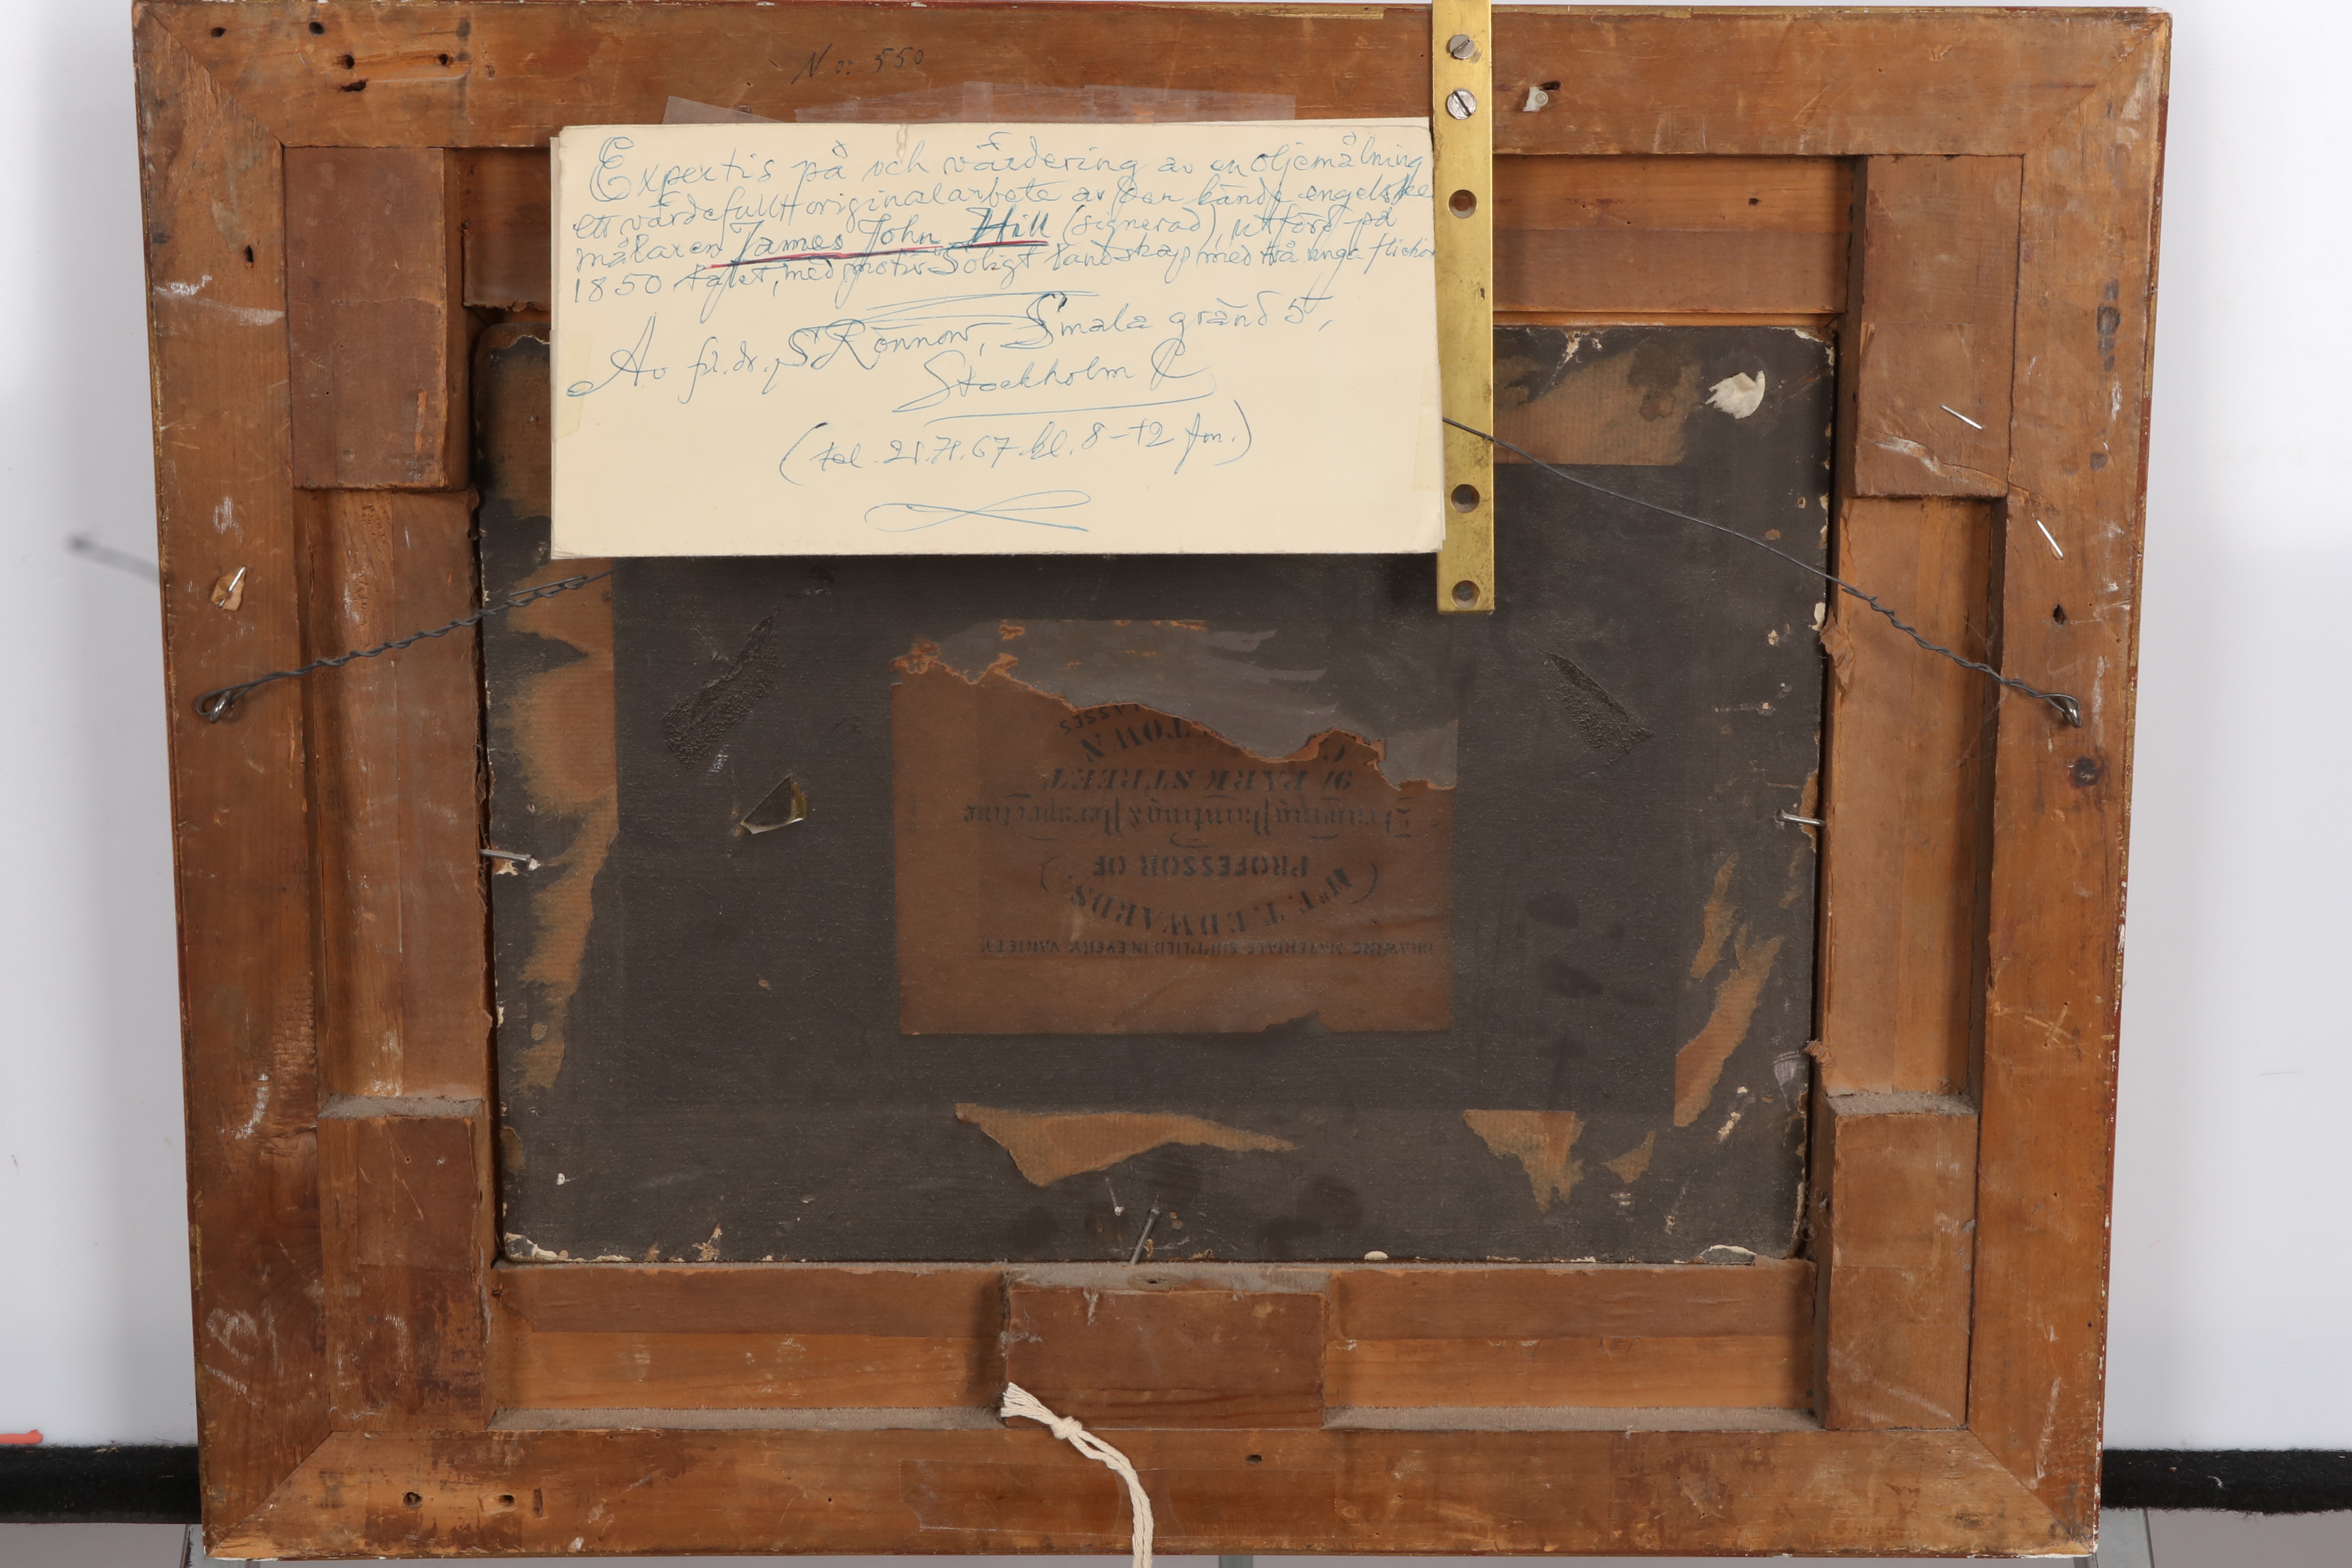 No: 550
Expertis på och värdering av en oljemålning
ett värdefullt originalarbete av den kände engelske
målaren James John Hill (signerad), utförd på
1850 talet, med motiv Soligt landskap med två unga flickor
Av fil. dr. S Rönnow, Smala gränd 5,
Stockholm C
(tel. 21.71.67. kl. 8-12 fm.)
DRAWING MATERIALS SUPPLIED IN EVERY VARIETY
Mr. E. T. EDWARDS,
PROFESSOR OF
Drawing Painting & Perspective
91 PARK STREET,
TOWN